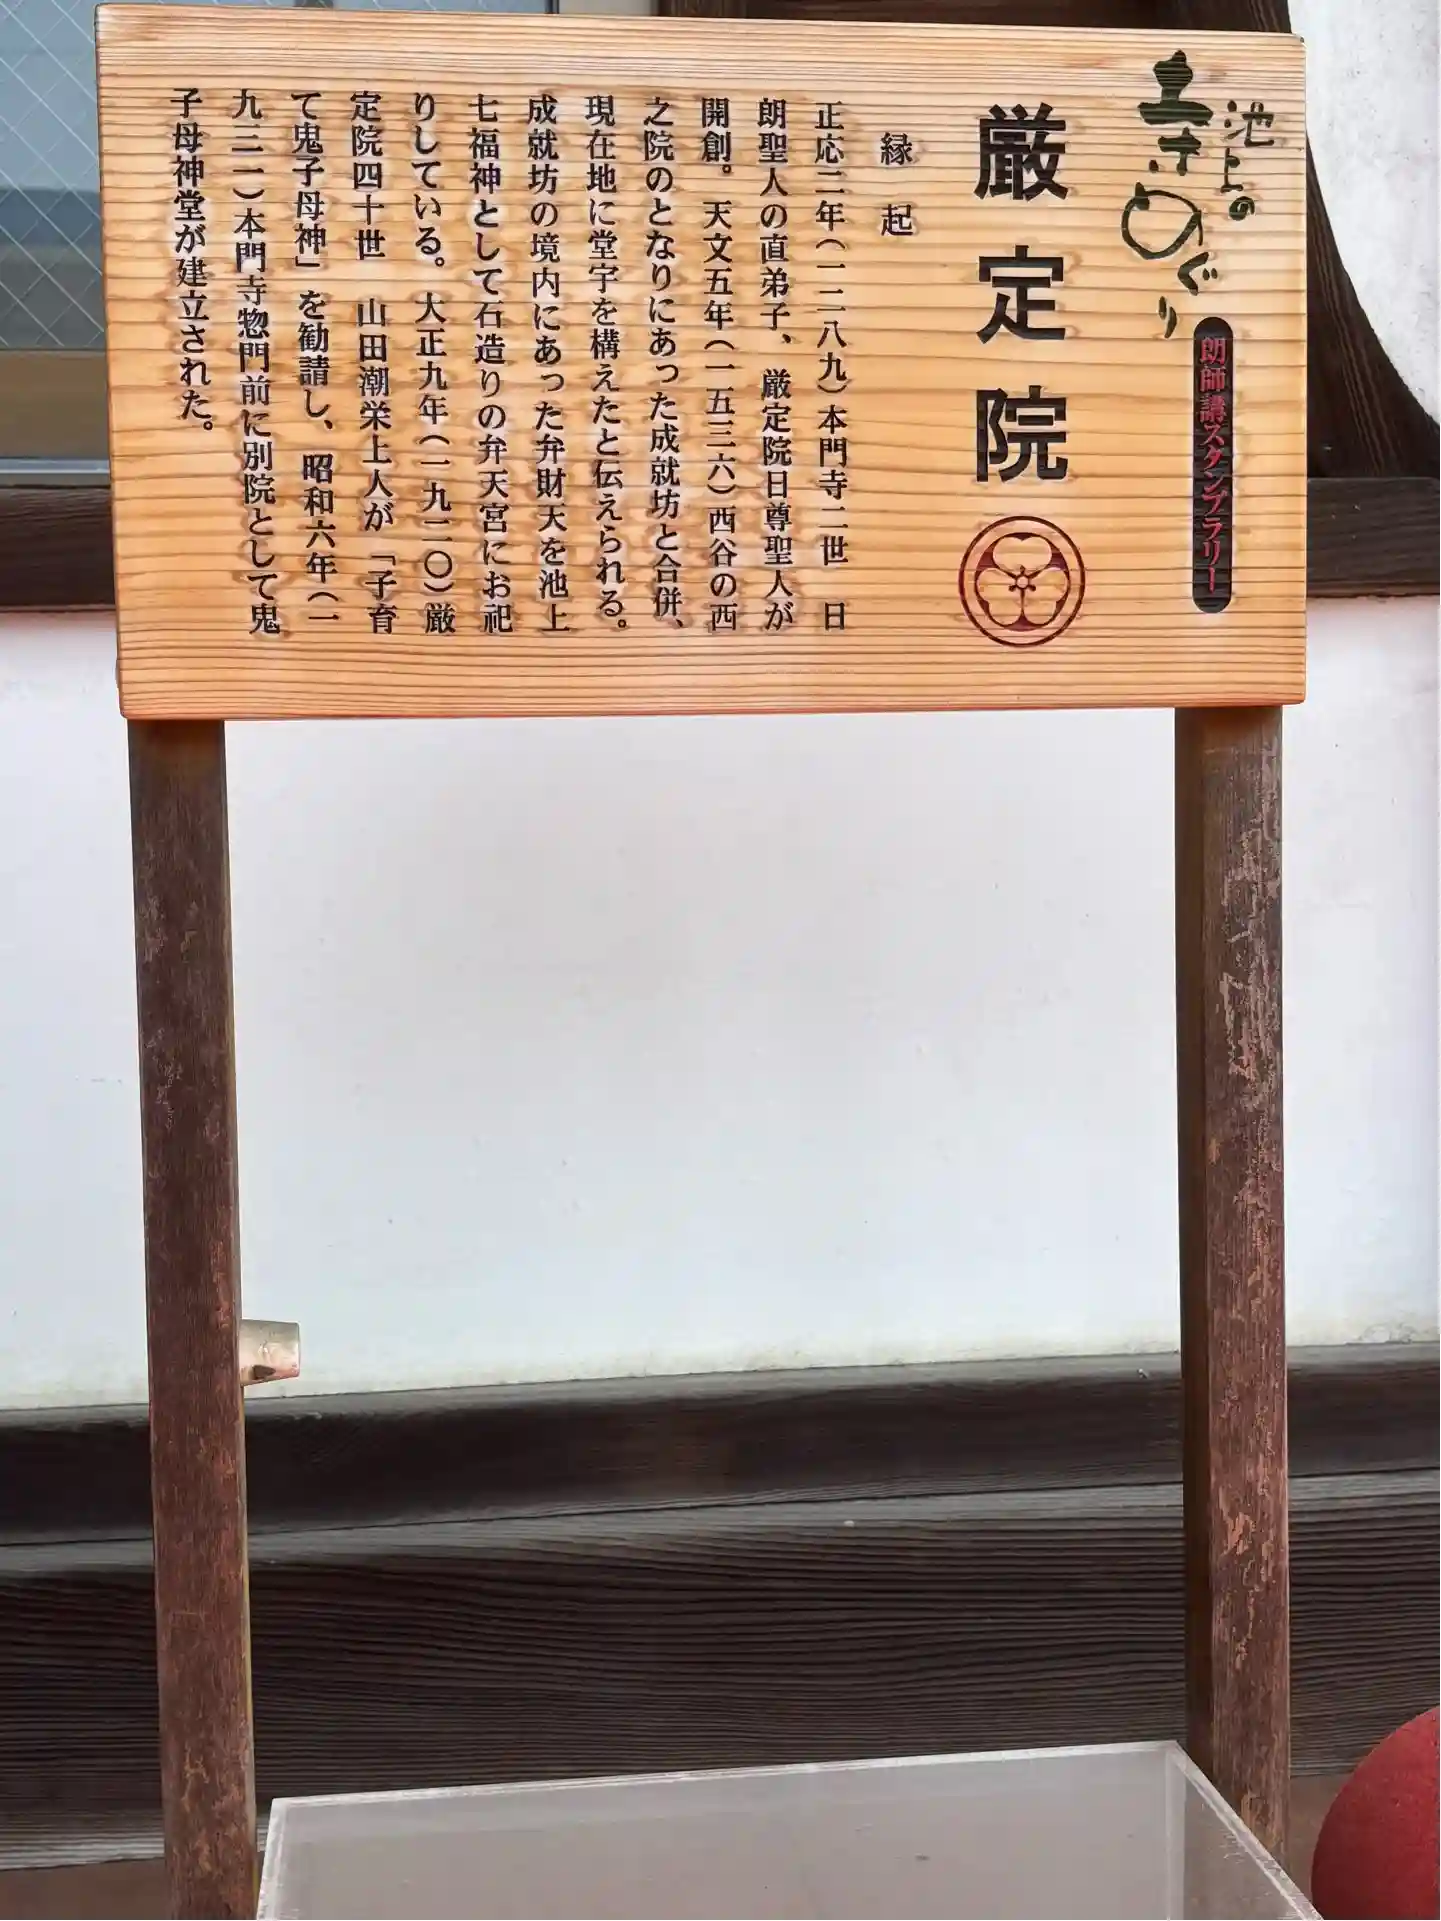 池上の
寺めぐり
朗師講スタンプラリー
厳定院
縁起
正応二年（一二八九）本門寺二世　日
朗聖人の直弟子、厳定院日尊聖人が
開創。天文五年（一五三六）西谷の西
之院のとなりにあった成就坊と合併、
現在地に堂宇を構えたと伝えられる。
成就坊の境内にあった弁財天を池上
七福神として石造りの弁天宮にお祀
りしている。大正九年（一九二〇）厳
定院四十世　山田潮栄上人が「子育
て鬼子母神」を勧請し、昭和六年（一
九三一）本門寺惣門前に別院として鬼
子母神堂が建立された。